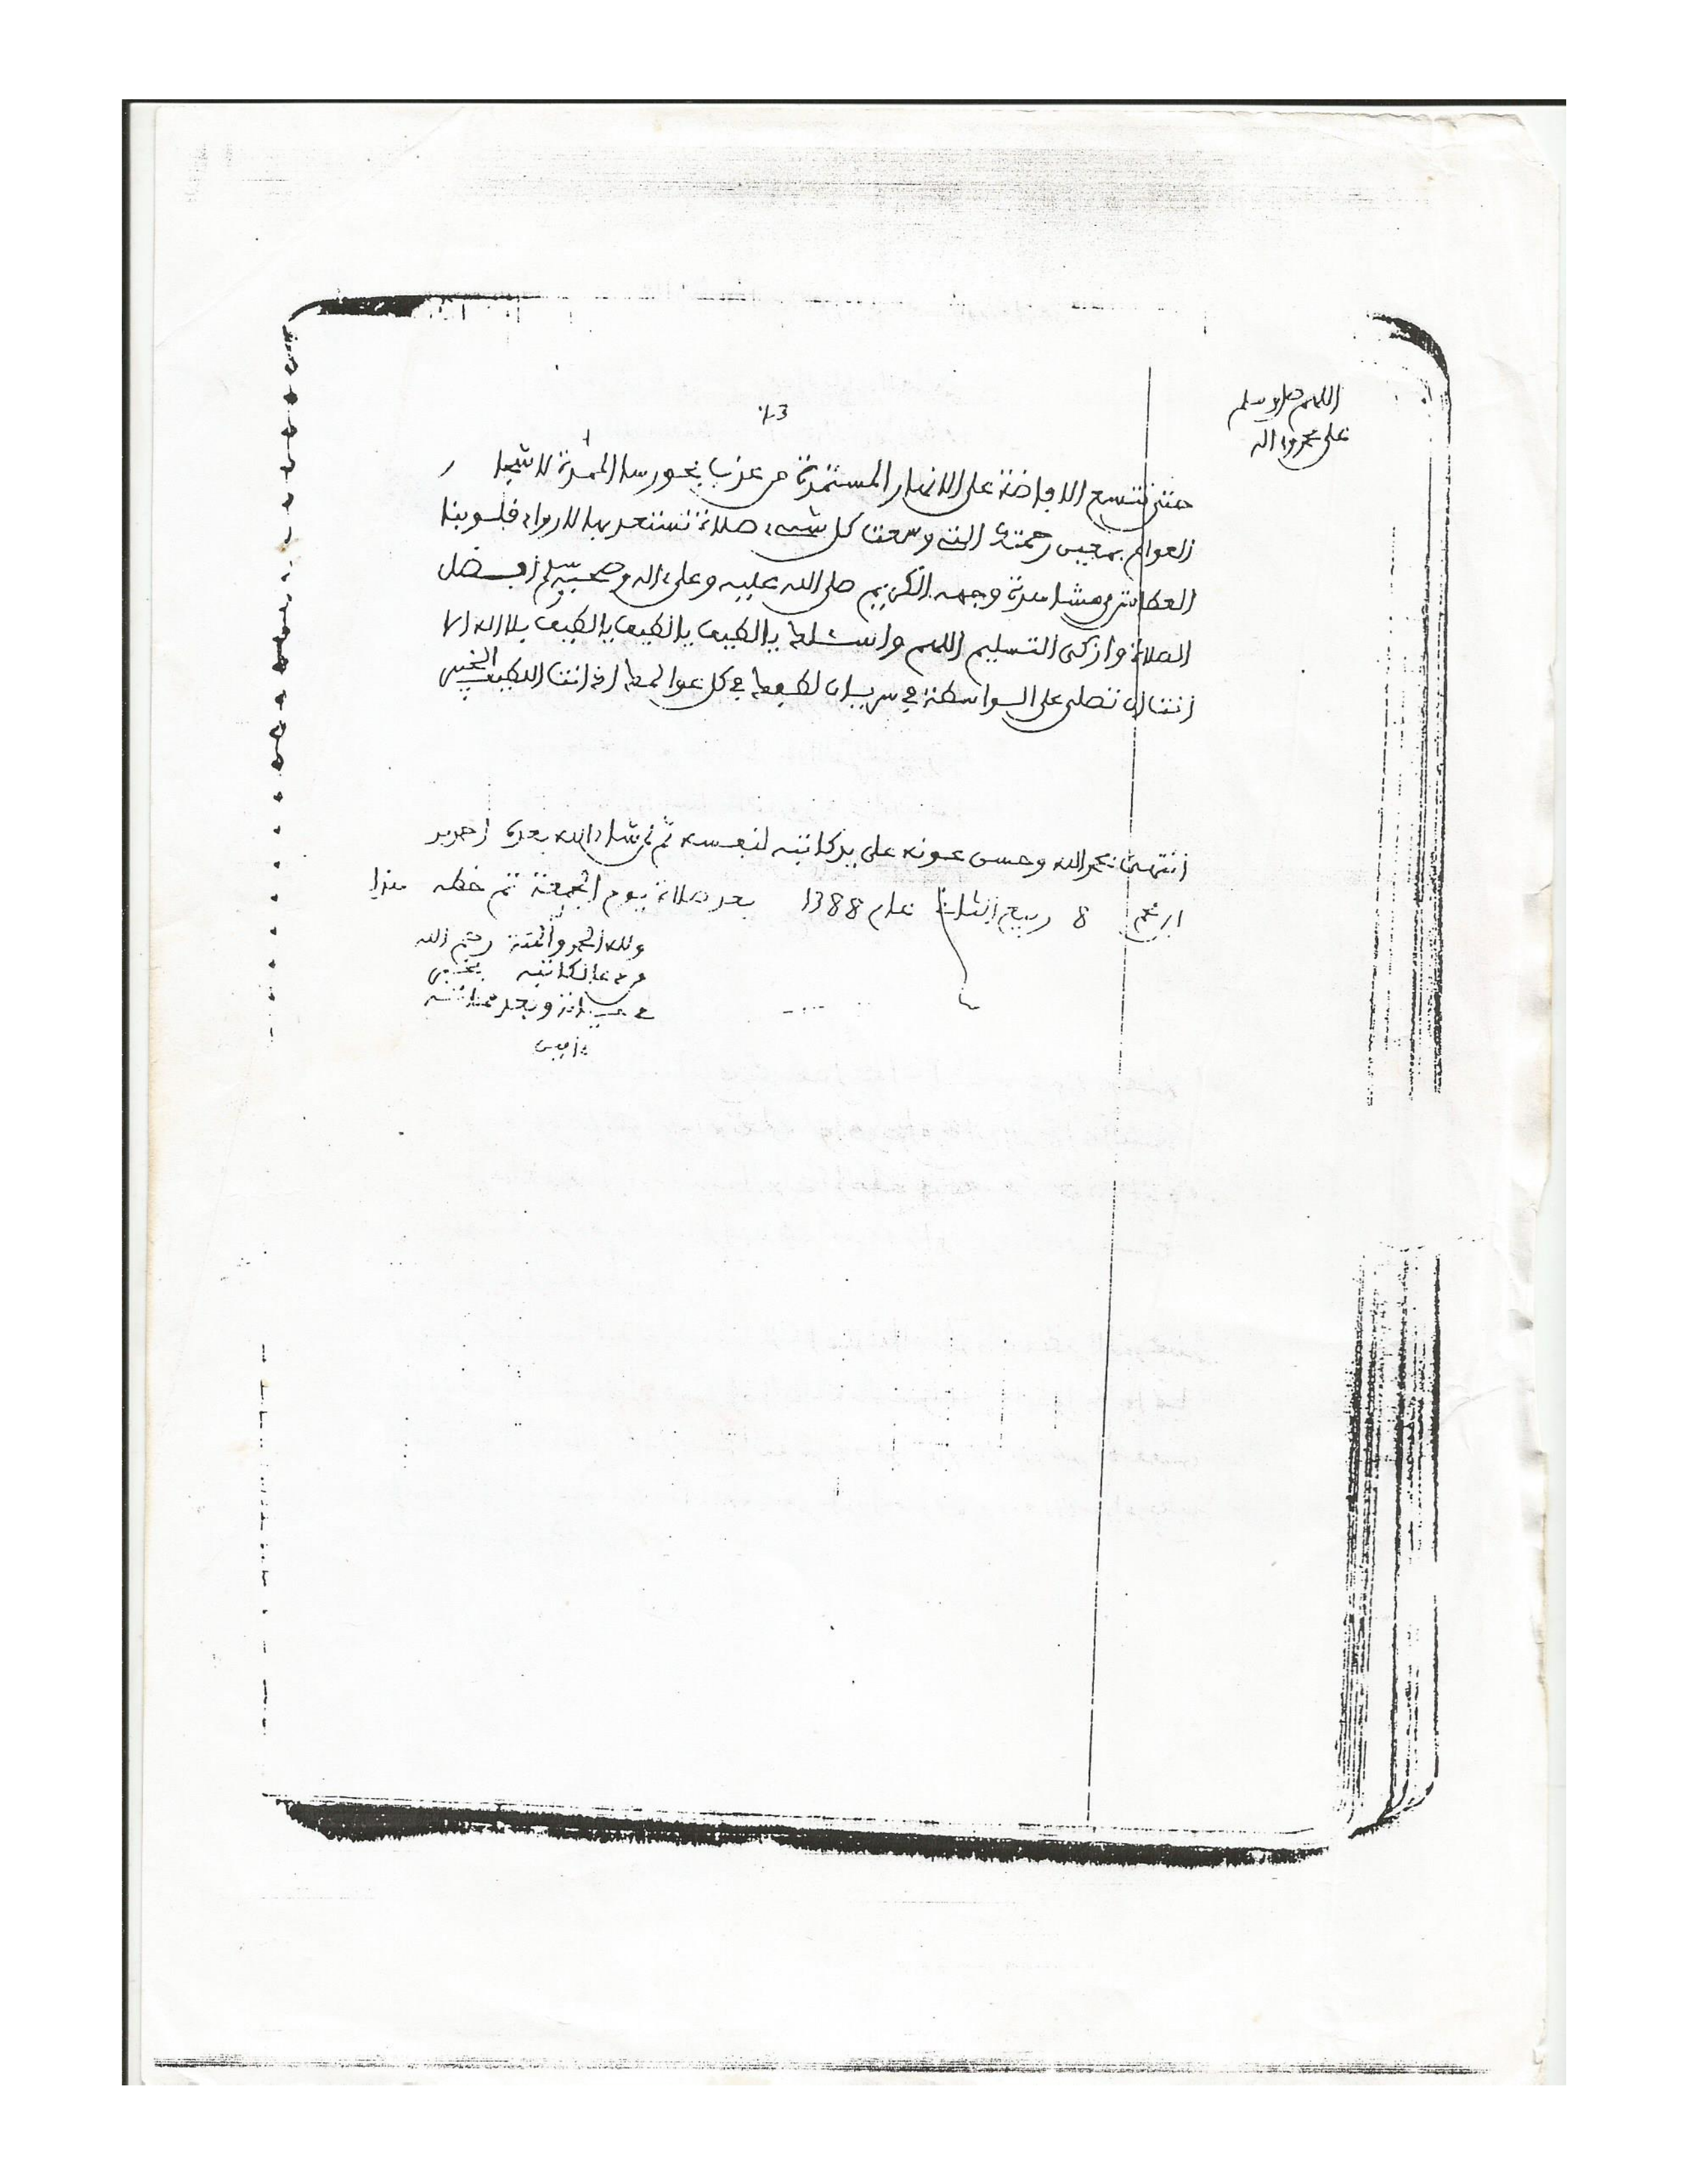 اللهم صل وسلم
على محمد وءاله
43
حتى تتسع الافاضة على الانهار المستمدة من عذب بحورها الممدة لاشجار
العوالم بمعين رحمتك التي وسعت كل شيء صلاة تستعد بها لارواء قلوبنا
العطاش من مشاهدة وجهه الكريم صلى الله عليه وعلى ءاله وصحبه وسلم افضل
الصلاة وازكى التسليم اللهم واسئلك يا لطيف يا لطيف يا لطيف بلا اله الا
انت ان تصلى على الواسطة في سريان لطفك في كل عوالمك اذ انت اللطيف الخبير
انتهى بحمد الله وحسن عونه على يد كاتبه لنفسه ثم لمن شاء الله بعده احمد بن
8 ربيع الثاني عام 1388 بعد صلاة يوم الجمعة تم خطه هذا
ولله الحمد والمنة رحم الله
من دعا لكاتبه بخير
في حياته وبعد مماته
ءامين